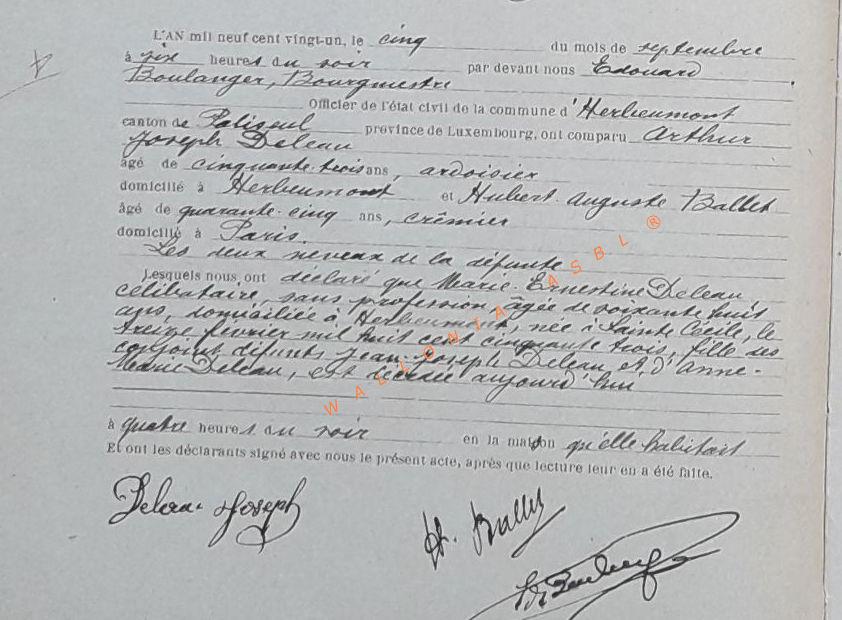 L'AN mil neuf cent vingt-un, le cinq du mois de septembre
à six heures du soir par devant nous Edouard
Boulanger, Bourgmestre
Officier de l'état civil de la commune d'Herbeumont
canton de Paliseul province de Luxembourg, ont comparu Arthur
Joseph Deleau
âgé de cinquante-trois ans, ardoisier
domicilié à Herbeumont et Hubert Auguste Ballet
âgé de quarante-cinq ans, crêmier
domicilié à Paris.
Les deux neveux de la défunte
Lesquels nous ont déclaré que Marie-Ernestine Deleau,
célibataire, sans profession, âgée de soixante huit
ans, domiciliée à Herbeumont, née à Sainte Cécile, le
treize février mil huit cent cinquante trois, fille des
conjoint défunts Jean-Joseph Deleau et d'Anne-
Marie Deleau, est décédée aujourd'hui
à quatre heures du soir en la maison qu'elle habitait
Et ont les déclarants signé avec nous le présent acte, après que lecture leur en a été faite.
Deleau Joseph
H. Ballet
Ed Boulanger
WALLONIA ASBL ®